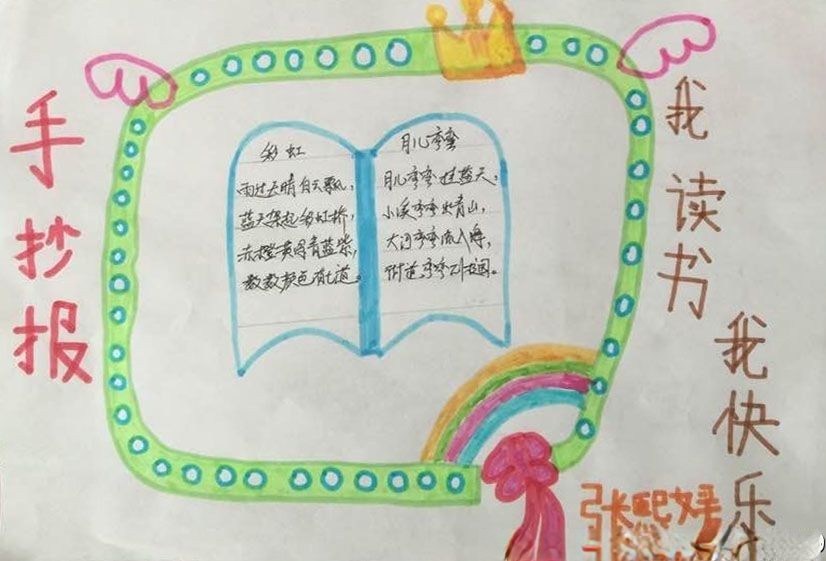 手抄报
彩虹
雨过天晴白云飘，
蓝天架起彩虹桥，
赤橙黄绿青蓝紫，
数数颜色有七道。
月儿弯弯
月儿弯弯挂蓝天，
小溪弯弯出青山，
大河弯弯流入海，
街道弯弯到校园。
我读书
我快乐
张熙